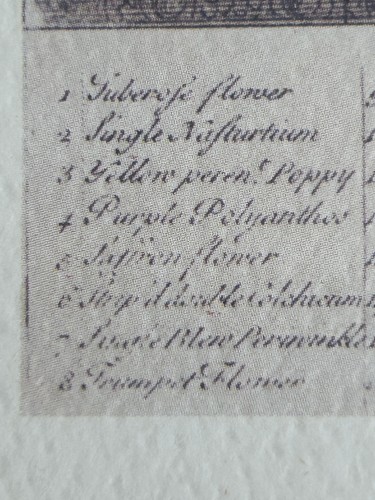 1 Tuberose flower
2 Single Nasturtium
3 Yellow peren.^t Poppy
4 Purple Polyanthos
5 Saffron flower
6 Strip'd double Colchicum
7 Single Blew Perivinkle
8 Trumpet Flower